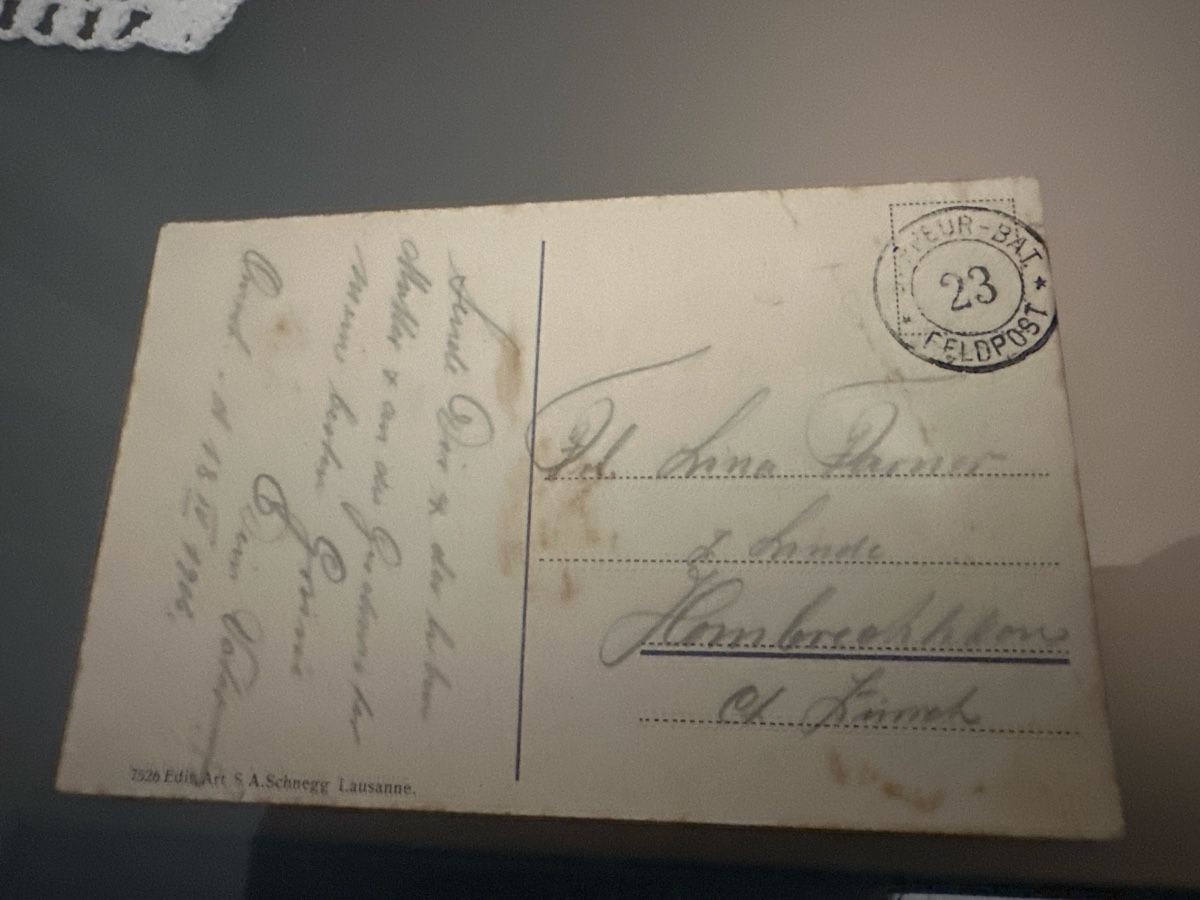 Sende Dir & der lieben
Mutter & an die
meine besten Grüsse
Dein Vater
18 IV 1916.
7526 Edit. Art. S.A. Schnegg Lausanne.
-BAT.
23
FELDPOST
Frl. Lina
z. Linde
Hombrechtikon
Ct. Zürich